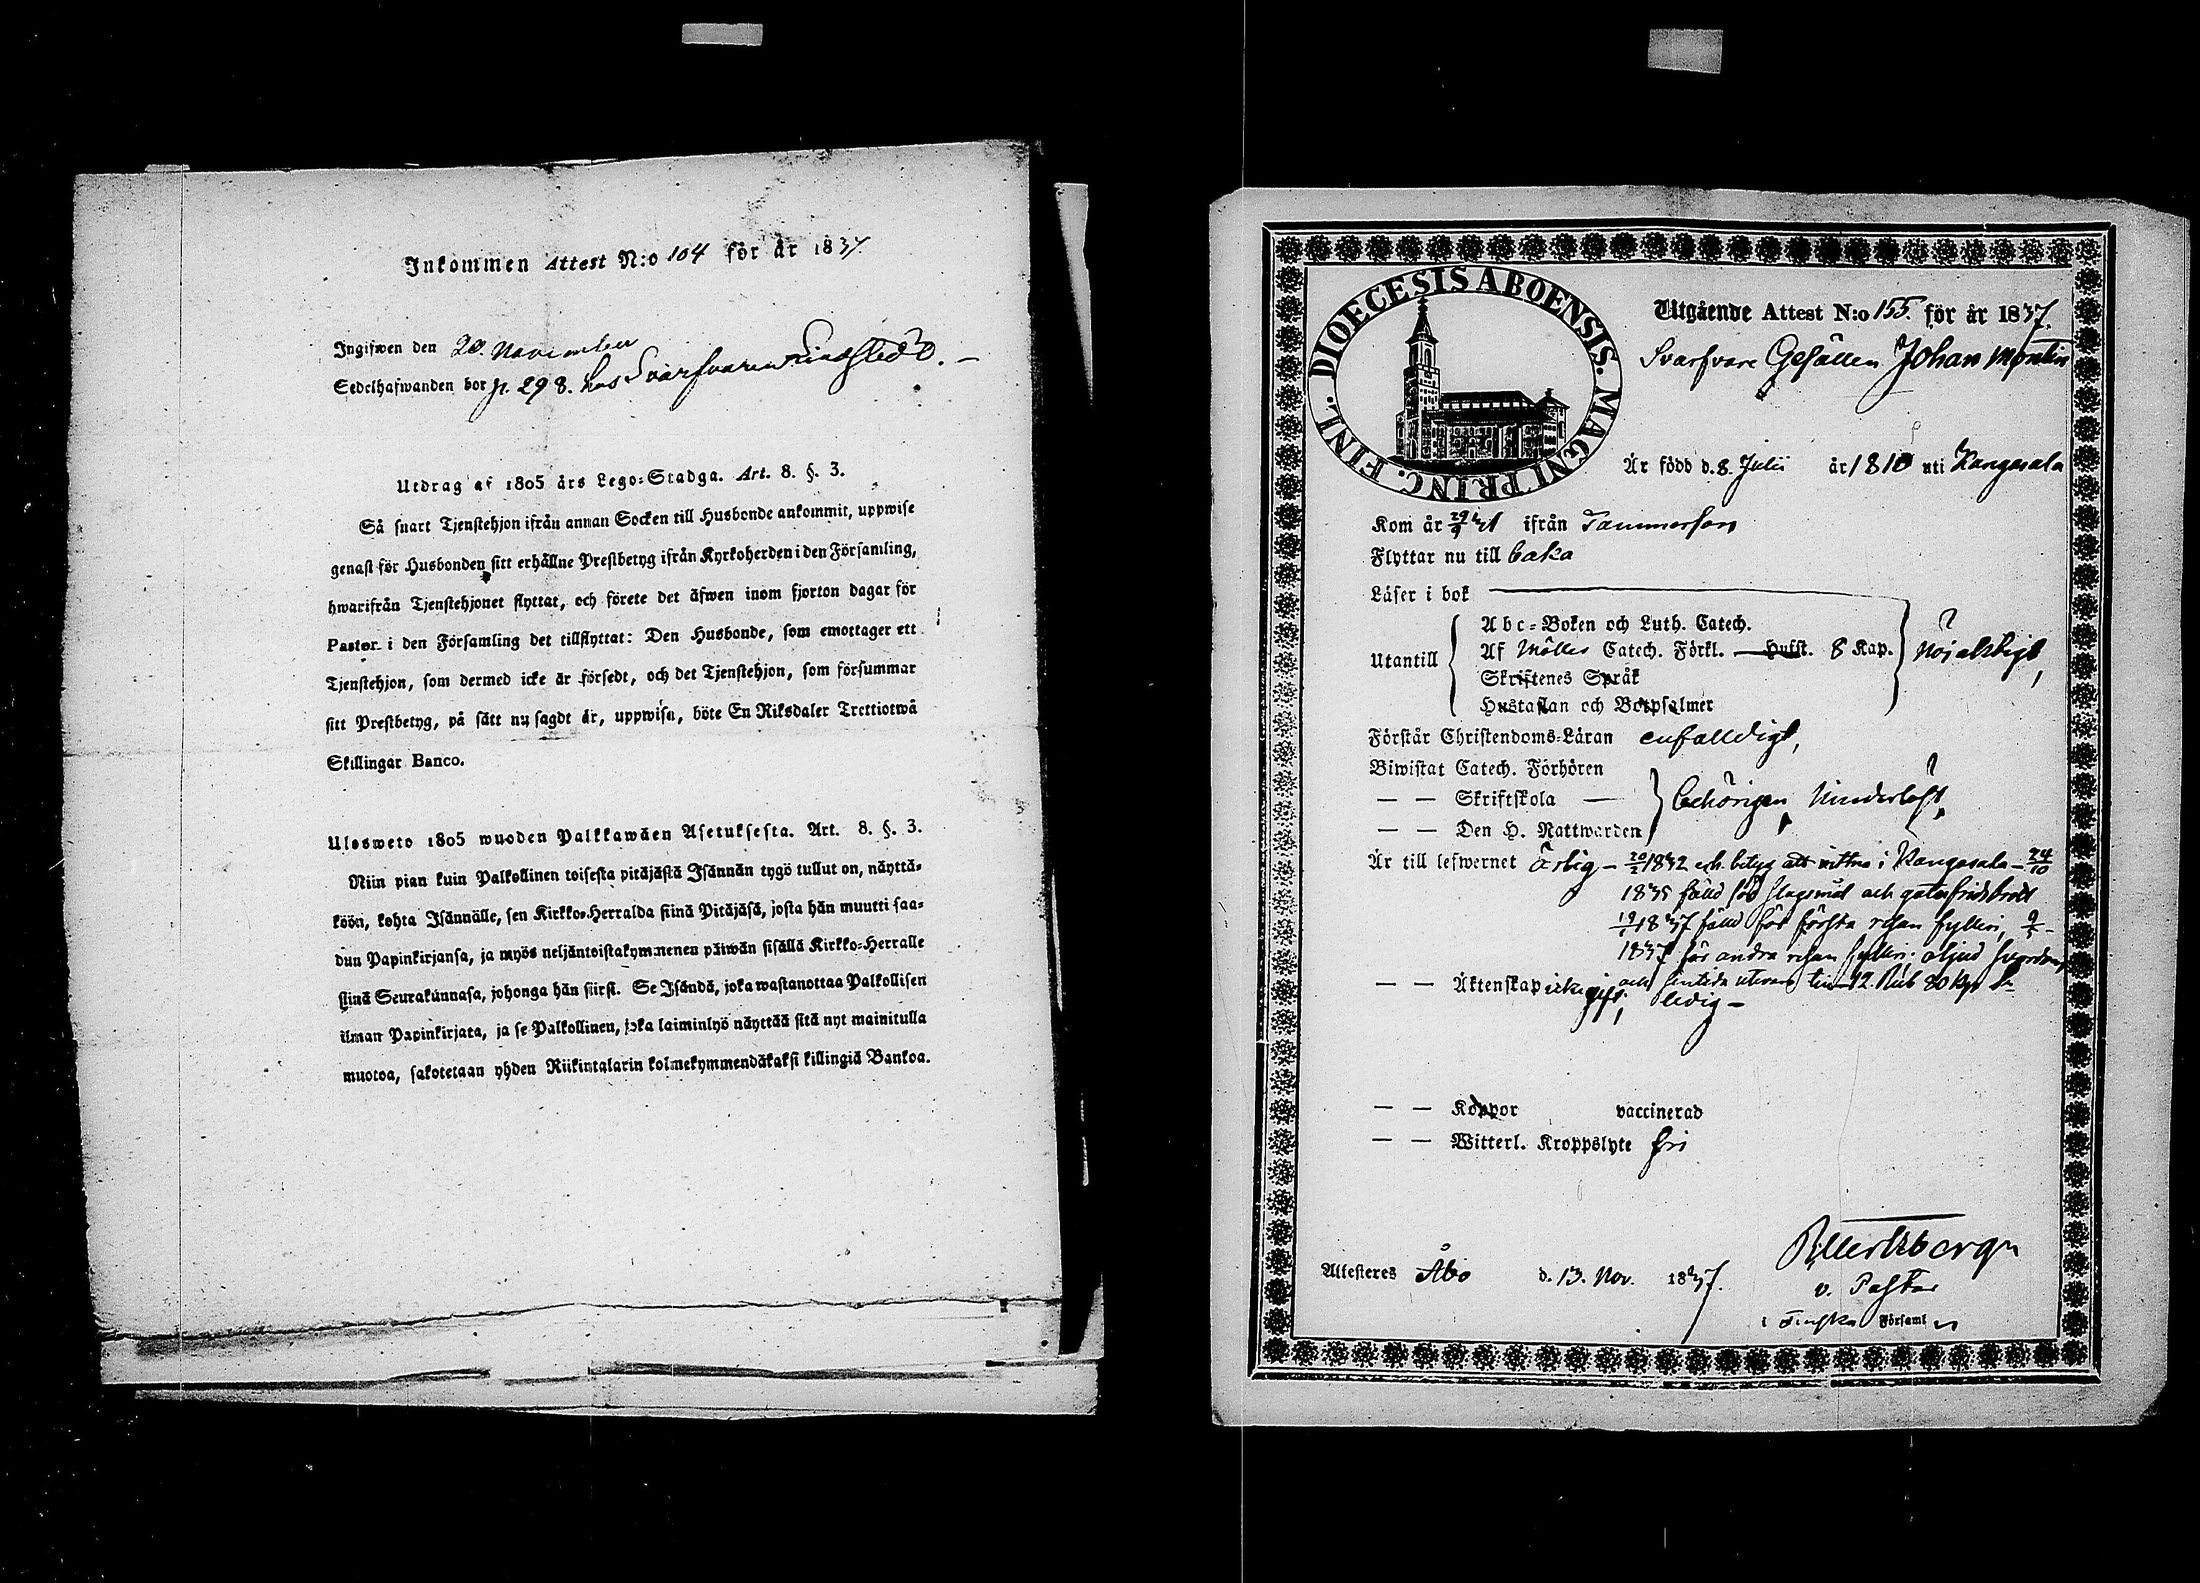 Inkommen Attest N:o 104 för år 1837
Ingifwen den 20. November
Sedelhafwanden bor p. 298. hos Svarfvaren Lindstedt. –
Utdrag af 1805 års Lego-Stadga. Art. 8. §. 3.
Så snart Tjenstehjon ifrån annan Socken till Husbonde ankommit, uppwise
genast för Husbonden sitt erhållne Prestbetyg ifrån Kyrkoherden i den Församling,
hwarifrån Tjenstehjonet flyttat, och förete det äfwen inom fjorton dagar för
Pastor i den Församling det tillflyttat: Den Husbonde, som emottager ett
Tjenstehjon, som dermed icke är försedt, och det Tjenstehjon, som försummar
sitt Prestbetyg, på sätt nu sagdt är, uppwisa, böte En Riksdaler Trettiotwå
Skillingar Banco.
Ulosweto 1805 wuoden Palkkawäen Asetuksesta. Art. 8. §. 3.
Niin pian kuin Palkollinen toisesta pitäjästä Isännän tygö tullut on, näyttä-
köön, kohta Isännälle, sen Kirkko-Herralda siinä Pitäjäsä, josta hän muutti saa-
dun Papinkirjansa, ja myös neljäntoistakymmenen päiwän sisällä Kirkko-Herralle
siinä Seurakunnasa, johonga hän siirst. Se Isändä, joka wastanottaa Palkollisen
ilman Papinkirjata, ja se Palkollinen, joka laiminlyö näyttää sitä nyt mainitulla
muotoa, sakotetaan yhden Riikintalarin kolmekymmendäkaksi killingiä Bankoa.
DIOECESIS ABOENSIS. MAGNI PRINC. FINL.
Utgående Attest N:o 155. för år 1837.
Svarfvare Gesällen Johan Montin
Är född d. 8. Julii år 1810 uti Kangasala
Kom år 29/9 31 ifrån Tammerfors
Flyttar nu till baka
Läser i bok
Utantill
Abc-Boken och Luth. Catech.
Af Möllers Catech. Förkl. Hufst. 8 Kap.
Skriftenes Språk
Hustaflan och Botpsalmer
Nöjaktigt,
Förstår Christendoms-Läran enfalldigt,
Biwistat Catech. Förhören
— — Skriftskola —
— — Den H. Nattwarden
behörigen
Är till lefwernet ärlig – 20/2 1832 erh. betyg att vittna i Kangasala – 24/10
1835 fälld för slagsmål och gatufridsbrott
1837 fälld för första resan fylleri,
1837 för andra resan fylleri; oljud
— — Äktenskap icke gift; ledig –
och 12. Rub 80 kop
— — Koppor vaccinerad
— — Witterl. Kroppslyte fri
Attesteres Åbo d. 13. Nov. 1837.
v. Pastor
i Finska Församl n